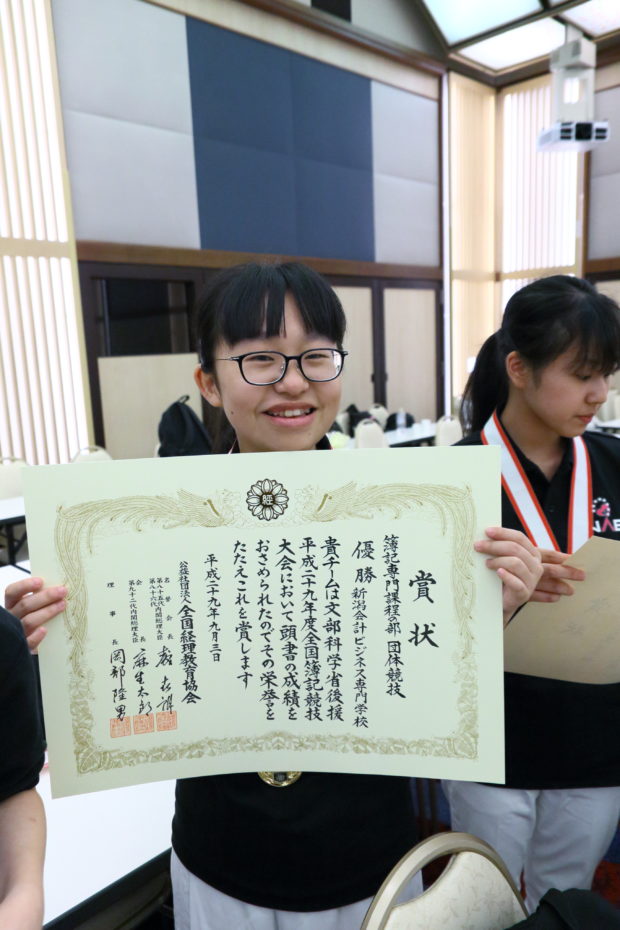 賞状
簿記専門課程の部 団体競技
優勝 新潟会計ビジネス専門学校
貴チームは文部科学省後援
平成二十九年度全国簿記競技
大会において頭書の成績を
おさめられたのでその栄誉を
たたえこれを賞します
平成二十九年九月三日
公益社団法人全国経理教育協会
名誉会長
第八十五代内閣総理大臣
第八十六代
森喜朗
会長
第九十二代内閣総理大臣
麻生太郎
理事長 岡部隆男